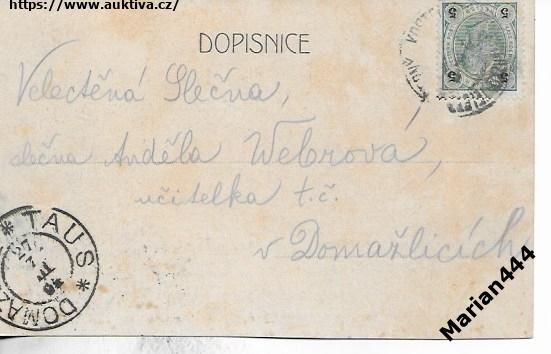 https://www.auktiva.cz/
DOPISNICE
5 5
5 5
Velectěná Slečna,
slečna Anděla Webrová,
učitelka t.č.
v Domažlicích
* TAUS * DOMAŽ
Marian444